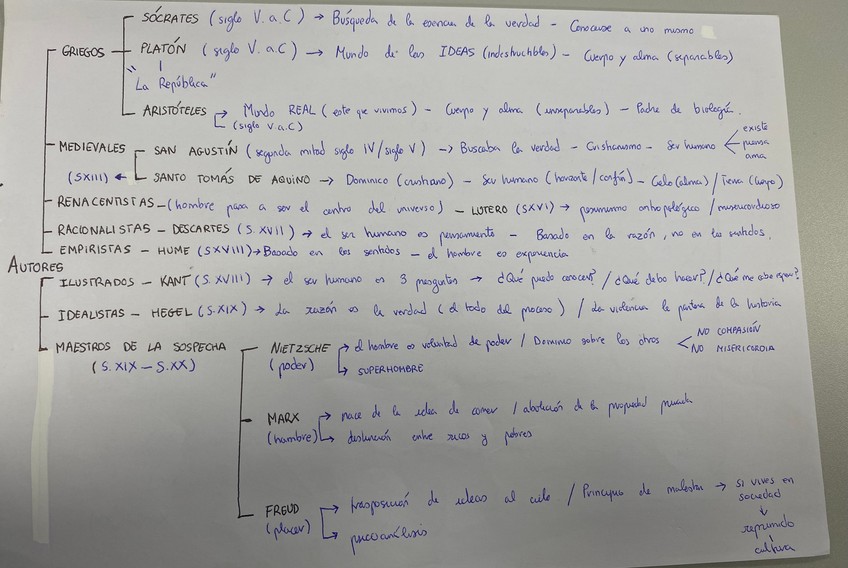 SÓCRATES (siglo V. a.C) → Búsqueda de la esencia de la verdad - Conocerse a uno mismo
GRIEGOS PLATÓN (siglo V. a.C) → Mundo de las IDEAS (indestructibles) - Cuerpo y alma (separables)
"La República"
ARISTÓTELES → Mundo REAL (este que vivimos) - Cuerpo y alma (inseparables) - Padre de biología.
(siglo V.a.C)
existe
MEDIEVALES SAN AGUSTÍN (segunda mitad siglo IV/siglo V) → Buscaba la verdad - Cristianismo - Ser humano piensa
ama
(SXIII) ← SANTO TOMÁS DE AQUINO → Dominico (cristiano) - Ser humano (horizonte/confín) - Cielo (alma) / Tierra (cuerpo)
RENACENTISTAS - (hombre pasa a ser el centro del universo) - LUTERO (SXVI) → pesimismo antropológico / misericordioso
RACIONALISTAS - DESCARTES (S. XVII) → el ser humano es pensamiento - Basado en la razón, no en los sentidos.
EMPIRISTAS - HUME (SXVIII) → Basado en los sentidos - el hombre es experiencia
AUTORES
ILUSTRADOS - KANT (S. XVIII) → el ser humano es 3 preguntas → ¿Qué puedo conocer? / ¿Qué debo hacer? / ¿Qué me cabe esperar?
IDEALISTAS - HEGEL (S.XIX) → La razón es la verdad (el todo del proceso) / La violencia la partera de la historia
MAESTROS DE LA SOSPECHA NIETZSCHE → el hombre es voluntad de poder / Dominio sobre los otros NO COMPASIÓN
(S. XIX - S.XX) (poder) → SUPERHOMBRE NO MISERICORDIA
MARX → nace de la idea de comer / abolición de la propiedad privada
(hambre) → distinción entre ricos y pobres
FREUD → trasposición de ideas al cielo / Principio de malestar → si vives en sociedad
(placer) → psicoanálisis
↓
reprimido
cultura